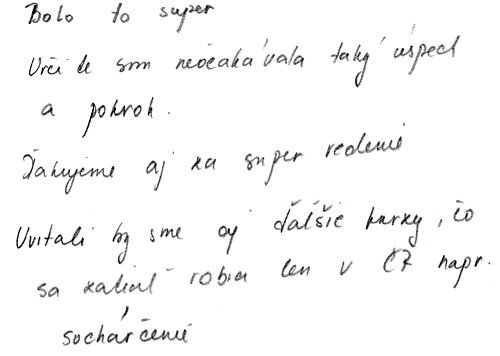 Bolo to super
Určite som neočakávala taký úspech
a pokrok.
Ďakujeme aj za super vedenie
Uvítali by sme aj ďalšie kurzy, čo
sa zatiaľ robia len v ČR napr.
sochárčenie